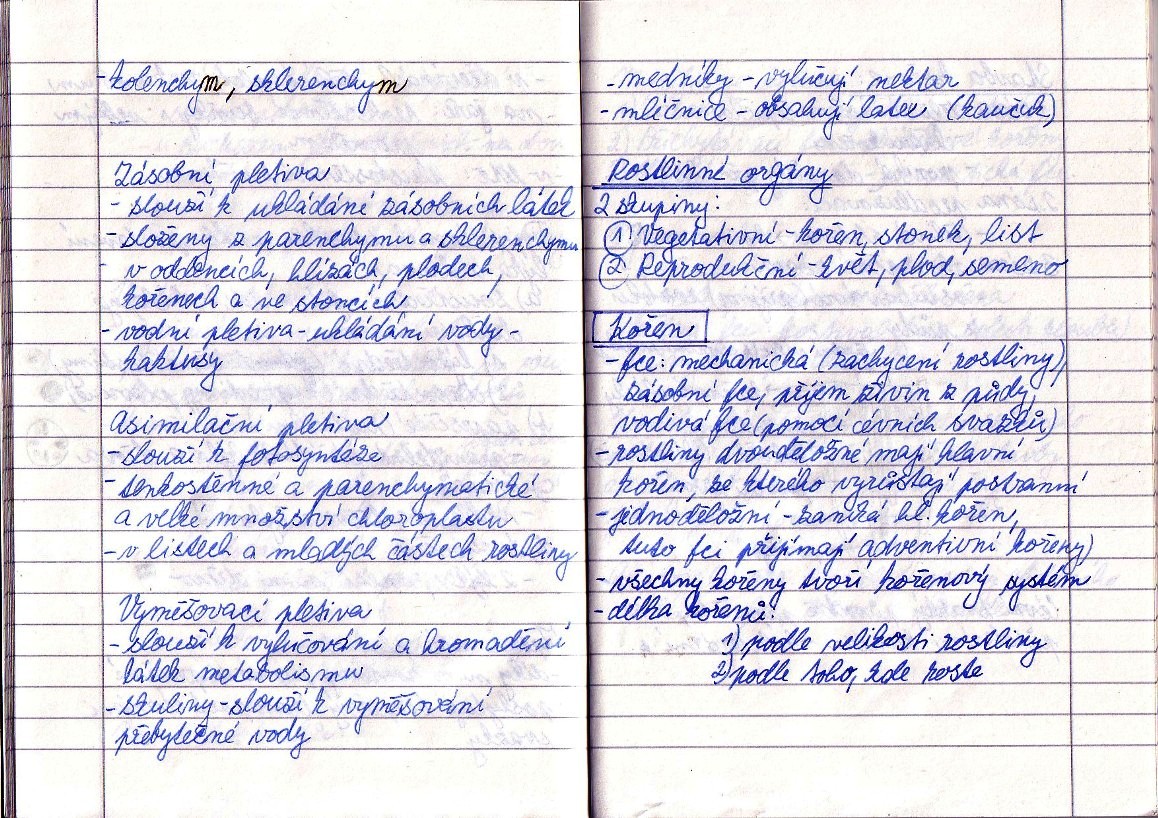 - kolenchym, sklerenchym
Zásobní pletiva
- slouží k ukládání zásobních látek
- složeny z parenchymu a sklerenchymu
- v oddencích, hlízách, plodech,
kořenech a ve stoncích
- vodní pletiva - ukládání vody -
kaktusy
Asimilační pletiva
- slouží k fotosyntéze
- tenkostěnné a parenchymatické
a velké množství chloroplastu
- v listech a mladých částech rostliny
Vyměšovací pletiva
- slouží k vylučování a hromadění
látek metabolismu
- skuliny - slouží k vyměšování
přebytečné vody
- medníky - vylučují nektar
- mléčnice - obsahují latex (kaučuk)
Rostlinné orgány
2 skupiny:
① Vegetativní - kořen, stonek, list
② Reprodukční - květ, plod, semeno
Kořen
- fce: mechanická (zachycení rostliny),
zásobní fce, příjem živin z půdy,
vodivá fce (pomocí cévních svazků)
- rostliny dvouděložné mají hlavní
kořen, ze kterého vyrůstají postranní
- jednoděložní - zaniká hl. kořen,
tuto fci přijímají adventivní kořeny)
- všechny kořeny tvoří kořenový systém
- délka kořenů:
1) podle velikosti rostliny
2) podle toho, kde roste